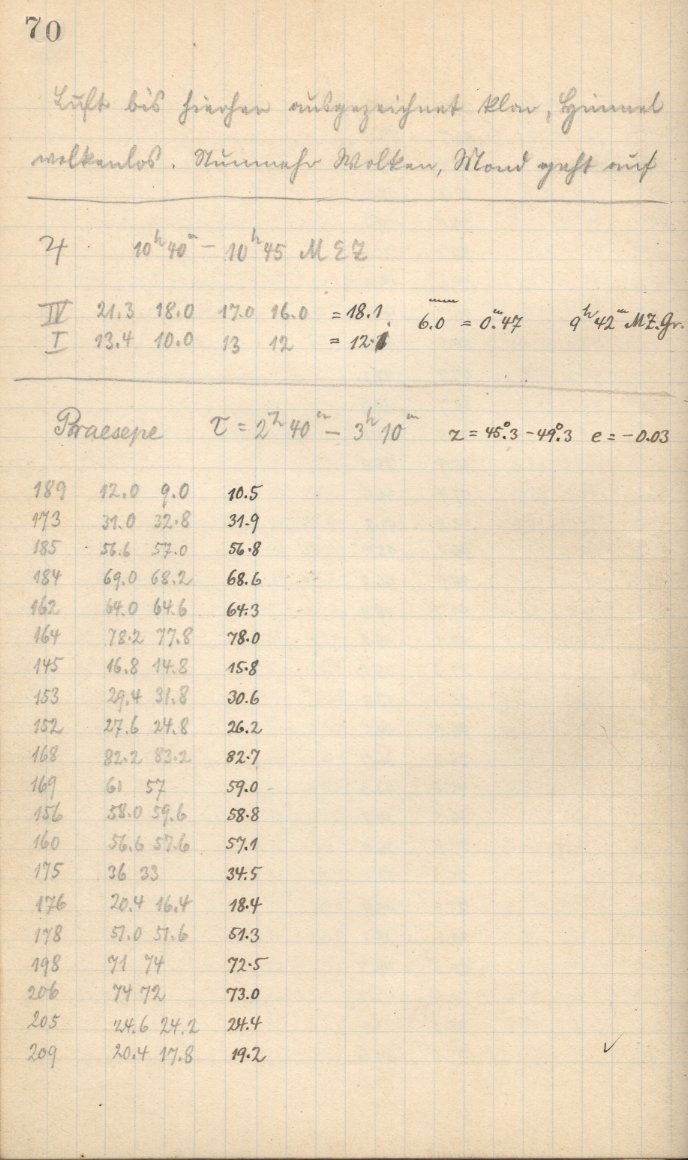 70
Luft bis hierher ausgezeichnet klar, Himmel
wolkenlos. Nunmehr Wolken, Mond geht auf
♃ 10ʰ40ᵐ – 10ʰ45 MEZ
IV 21.3 18.0 17.0 16.0 = 18.1
6.0 = 0ᵐ.47 9ʰ42ᵐ MZ.Gr.
I 13.4 10.0 13 12 = 12.1
Praesepe τ = 2ʰ40ᵐ – 3ʰ10ᵐ z = 45°.3 – 49°.3 e = –0.03
189 12.0 9.0 10.5
173 31.0 32.8 31.9
185 56.6 57.0 56.8
184 69.0 68.2 68.6
162 64.0 64.6 64.3
164 78.2 77.8 78.0
145 16.8 14.8 15.8
153 29.4 31.8 30.6
152 27.6 24.8 26.2
168 82.2 83.2 82.7
169 61 57 59.0
156 58.0 59.6 58.8
160 56.6 57.6 57.1
175 36 33 34.5
176 20.4 16.4 18.4
178 51.0 51.6 51.3
198 71 74 72.5
206 74 72 73.0
205 24.6 24.2 24.4
209 20.4 17.8 19.2
✓